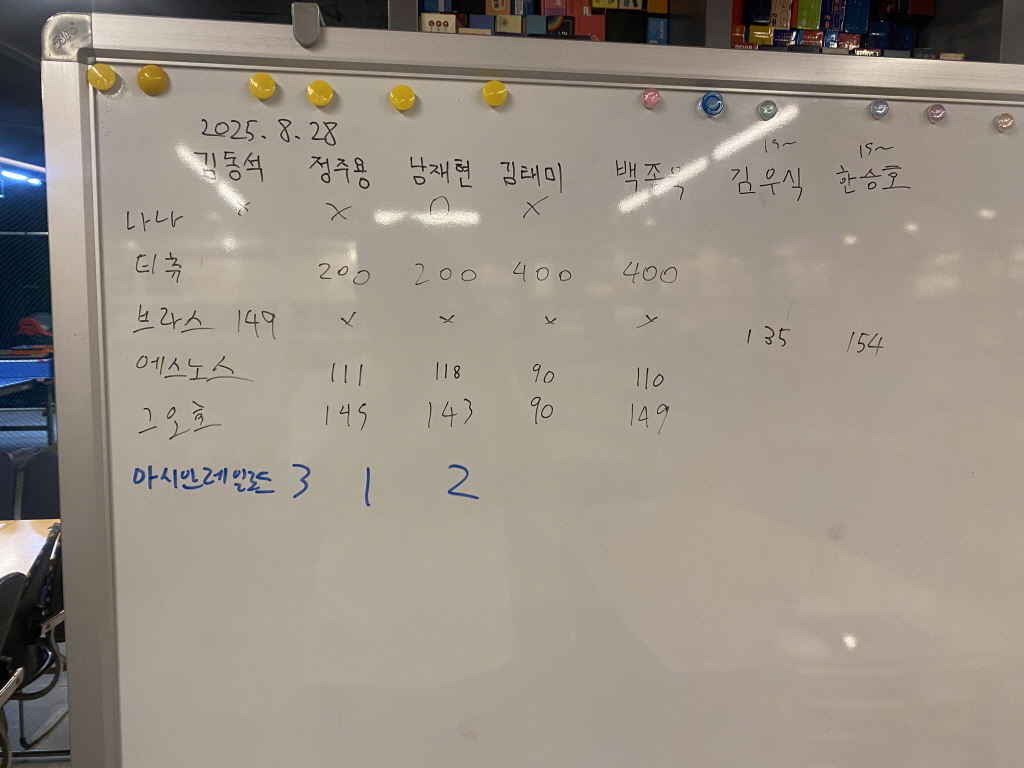 2025.8.28
19~ 19~
김동석 정주용 남재현 김태미 백준 김우식 한승호
나나 x x O X
티츄 200 200 400 400
브라스 149 x x x x 135 154
에스노스 111 118 90 110
그오호 145 143 90 149
아시안레일로드 3 1 2